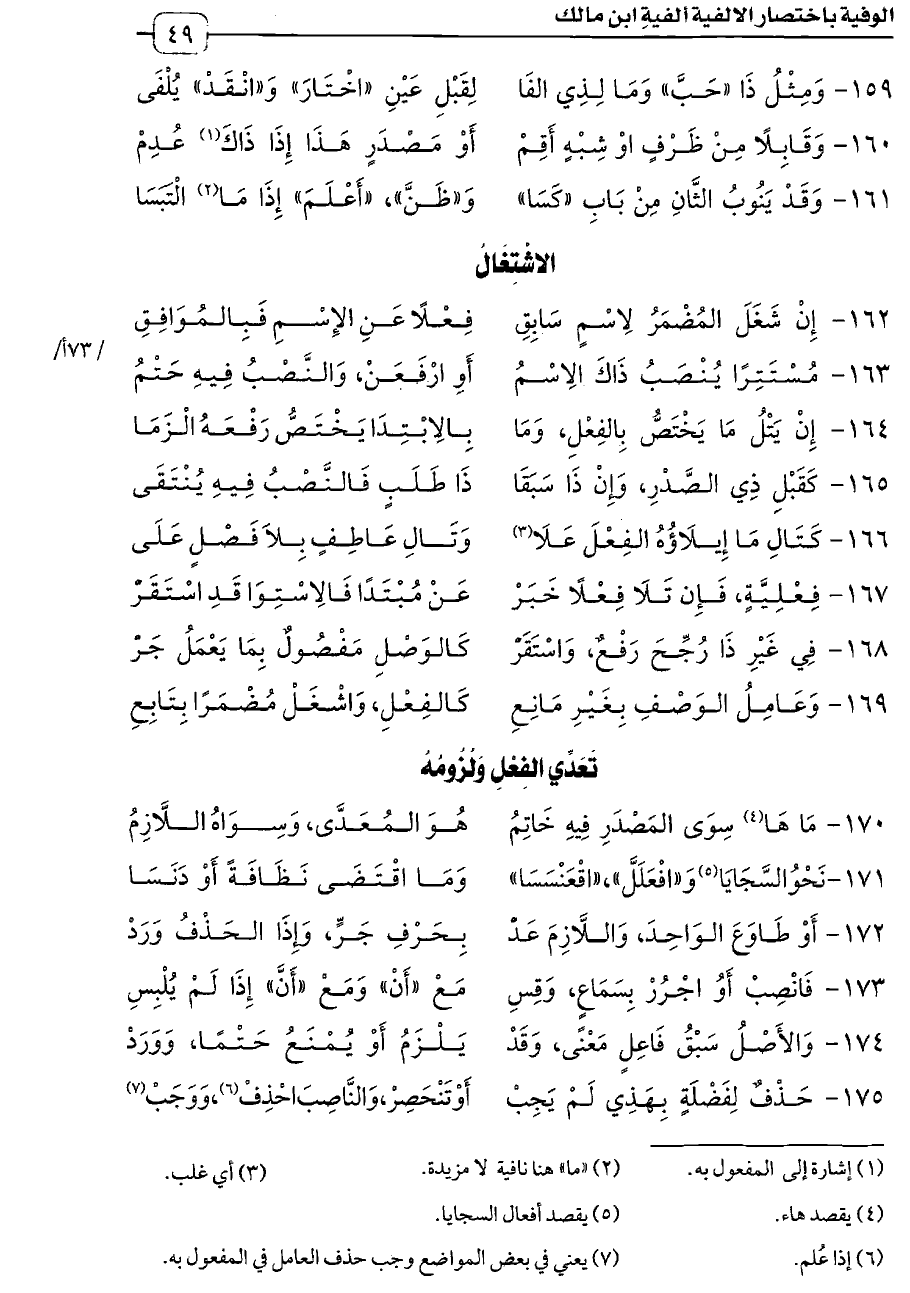 الوفية باختصار الألفية ألفية ابن مالك
٤٩
١٥٩- وَمِثْلُ ذَا «حَبَّ» وَمَا لِذِي الفَا لِقَبْلِ عَيْنِ «اخْتَارَ» وَ«انْقَدْ» يُلْفَى
١٦٠- وَقَابِلًا مِنْ ظَرْفٍ اوْ شِبْهٍ أَقِمْ أَوْ مَصْدَرٍ هَذَا إِذَا ذَاكَ(١) عُدِمْ
١٦١- وَقَدْ يَنُوبُ الثَّانِ مِنْ بَابِ «كَسَا» وَ«ظَنَّ»، «أَعْلَمَ» إِذَا مَا(٢) الْتَبَسَا
الاشْتِغَالُ
١٦٢- إِنْ شَغَلَ المُضْمَرُ لِاسْمٍ سَابِقِ فِعْلًا عَنِ الإِسْمِ فَبِالمُوَافِقِ
/٧٣أ/
١٦٣- مُسْتَتِرًا يُنْصَبُ ذَاكَ الِاسْمُ أَوِ ارْفَعَنْ، وَالنَّصْبُ فِيهِ حَتْمُ
١٦٤- إِنْ يَتْلُ مَا يَخْتَصُّ بِالفِعْلِ، وَمَا بِالِابْتِدَا يَخْتَصُّ رَفْعَهُ الْزَمَا
١٦٥- كَقَبْلِ ذِي الصَّدْرِ، وَإِنْ ذَا سَبَقَا ذَا طَلَبٍ فَالنَّصْبُ فِيهِ يُنْتَقَى
١٦٦- كَتَالِ مَا إِيلَاؤُهُ الفِعْلَ عَلَا(٣) وَتَالِ عَاطِفٍ بِلاَ فَصْلٍ عَلَى
١٦٧- فِعْلِيَّةٍ، فَإِن تَلَا فِعْلًا خَبَرْ عَنْ مُبْتَدًا فَالِاسْتِوَا قَدِ اسْتَقَرْ
١٦٨- فِي غَيْرِ ذَا رُجِّحَ رَفْعٌ، وَاسْتَقَرّْ كَالوَصْلِ مَفْصُولٌ بِمَا يَعْمَلُ جَرّْ
١٦٩- وَعَامِلُ الوَصْفِ بِغَيْرِ مَانِعِ كَالفِعْلِ، وَاشْغَلْ مُضْمَرًا بِتَابِعِ
تَعَدِّي الفِعْلِ وَلُزُومُهُ
١٧٠- مَا هَا(٤) سِوَى المَصْدَرِ فِيهِ خَاتِمُ هُوَ المُعَدَّى، وَسِوَاهُ اللَّازِمُ
١٧١- نَحْوُ السَّجَايَا(٥) وَ«افْعَلَلَّ»، «اقْعَنْسَسَا» وَمَا اقْتَضَى نَظَافَةً أَوْ دَنَسَا
١٧٢- أَوْ طَاوَعَ الوَاحِدَ، وَاللَّازِمَ عَدّْ بِحَرْفِ جَرٍّ، وَإِذَا الحَذْفُ وَرَدْ
١٧٣- فَانْصِبْ أَوُ اجْرُرْ بِسَمَاعٍ، وَقِسِ مَعْ «أَنْ» وَمَعْ «أَنَّ» إِذَا لَمْ يُلْبِسِ
١٧٤- وَالأَصْلُ سَبْقُ فَاعِلٍ مَعْنًى، وَقَدْ يَلْزَمُ أَوْ يُمْنَعُ حَتْمًا، وَوَرَدْ
١٧٥- حَذْفٌ لِفَضْلَةٍ بِهَذِي لَمْ يَجِبْ أَوْ تَنْحَصِرْ، وَالنَّاصِبَ احْذِفْ(٦)، وَوَجَبْ(٧)
(١) إشارة إلى المفعول به. (٢) «ما» هنا نافية لا مزيدة. (٣) أي غلب.
(٤) يقصد هاء. (٥) يقصد أفعال السجايا.
(٦) إذا عُلم. (٧) يعني في بعض المواضع وجب حذف العامل في المفعول به.